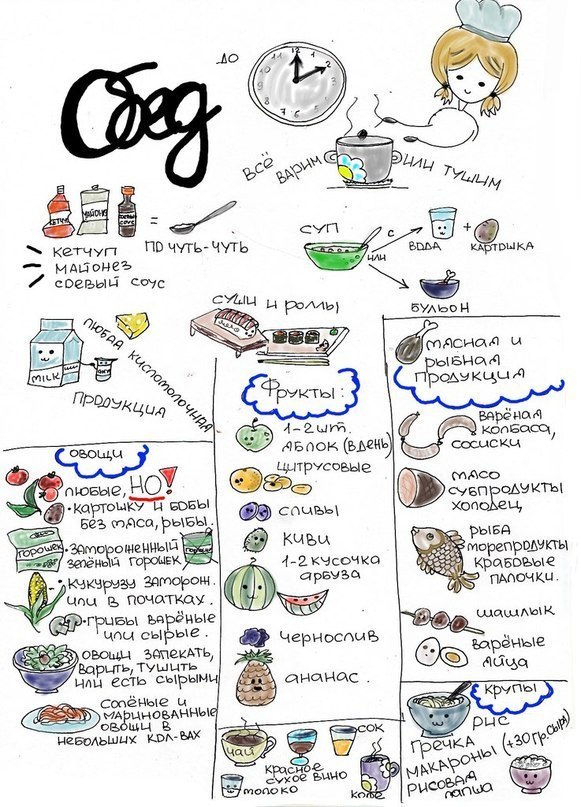 Обед
до
12
1
2
3
4
5
6
7
8
9
10
11
всё варим или тушим
кетчуп
майонез
соевый соус
=
кетчуп
майонез
соевый соус
по чуть-чуть
суп
с
или
вода
+
картошка
бульон
суши и роллы
MILK
любая кисломолочная
продукция
овощи
любые, но!
•картошку и бобы
без мяса, рыбы.
горошек
•замороженный
зелёный горошек
горошек
•кукурузу заморож.
или в початках.
•грибы варёные
или сырые.
овощи запекать,
варить, тушить
или есть сырыми
солёные и
маринованные
овощи в
небольших кол-вах
Фрукты:
1-2 шт.
яблок (в день)
цитрусовые
сливы
киви
1-2 кусочка
арбуза
чернослив
ананас.
чай
сок
красное
сухое вино
молоко
кофе
мясная и
рыбная
продукция
варёная
колбаса,
сосиски
мясо
субпродукты
холодец
рыба
морепродукты
крабовые
палочки.
шашлык
варёные
яйца
крупы
рис
гречка
макароны (+30 гр. сыра)
рисовая
лапша